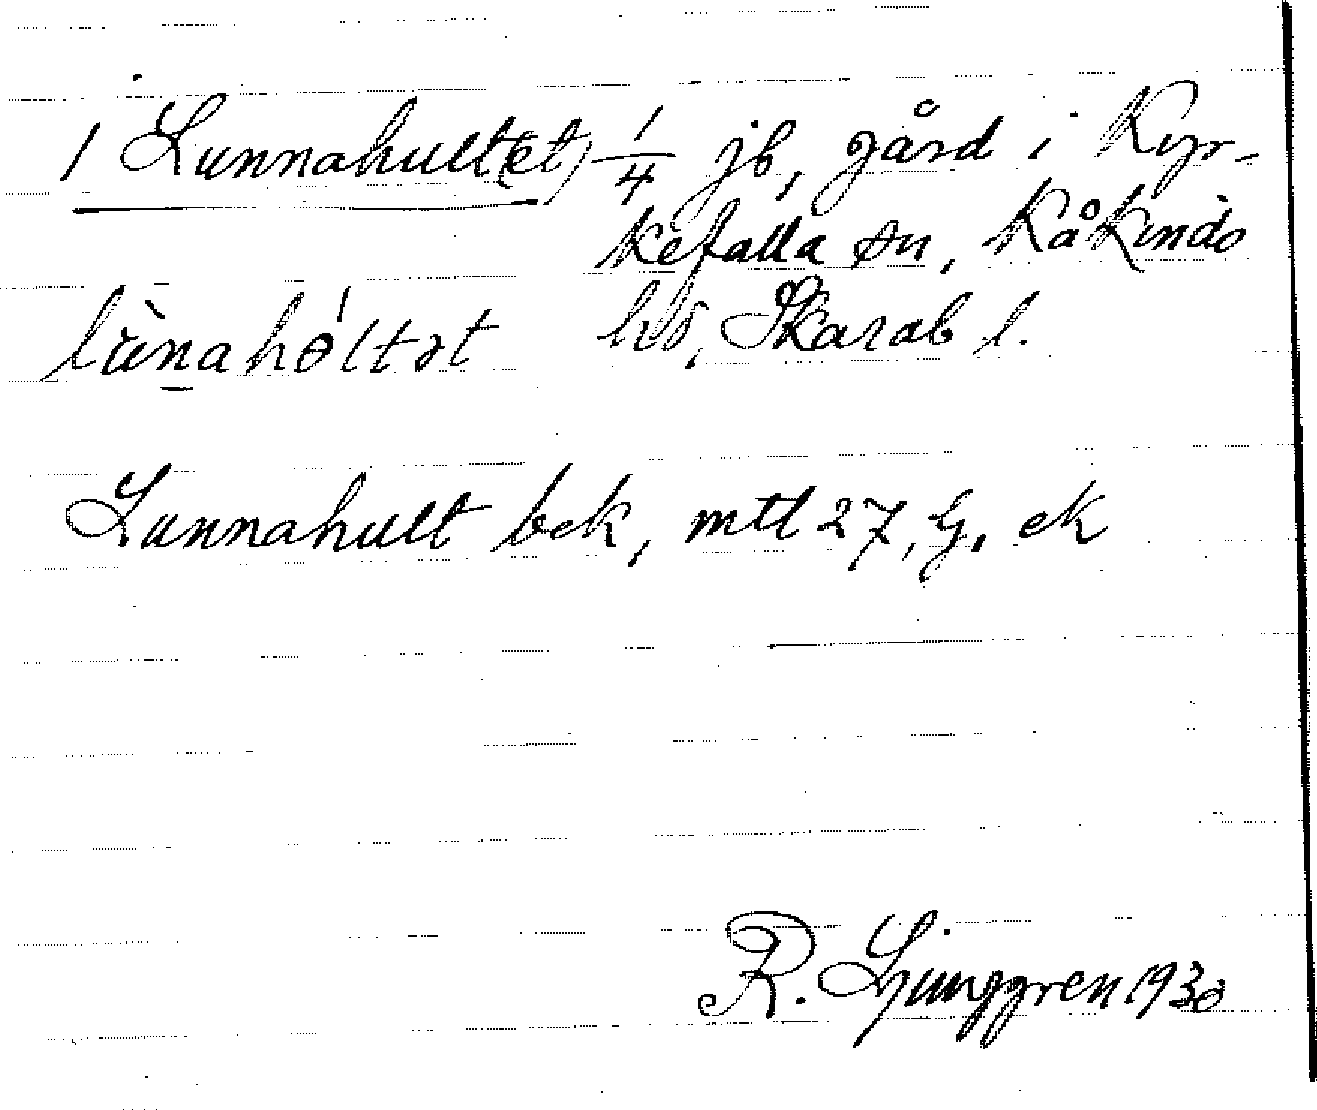 1 Lunnahult(et) 1/4 jb, gård i Kyr-
kefalla sn, Kåkinds
hd, Skarab l.
lùnahél̍tət
Lunnahult bek, mtl 27, G, ek
R. Ljunggren 1930